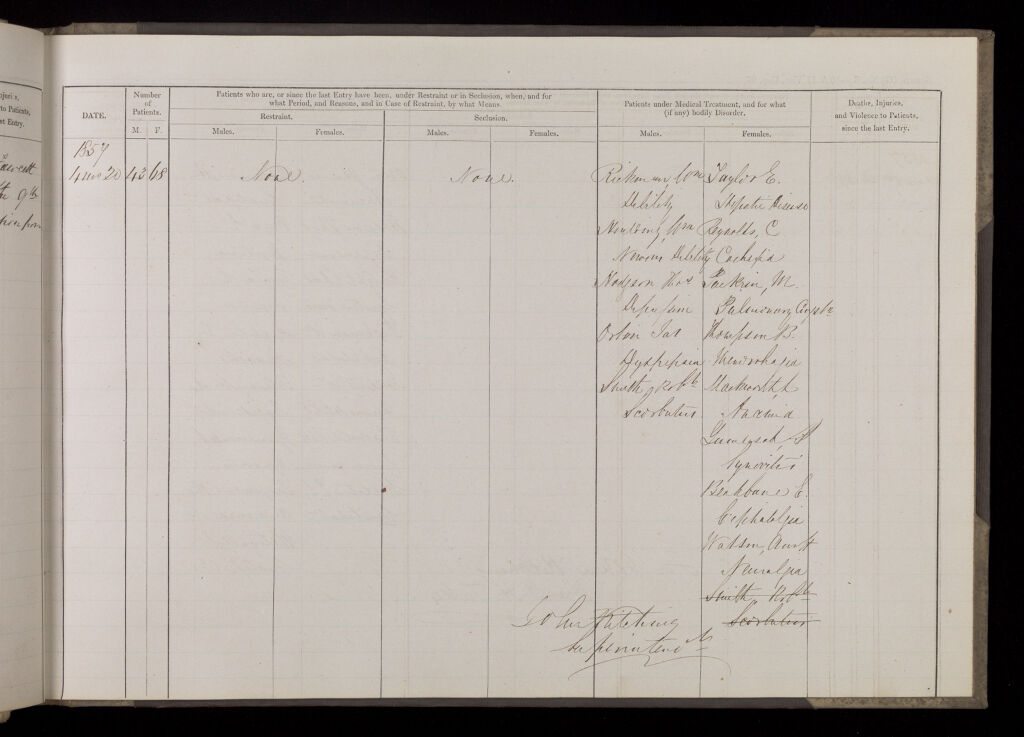 njuries,
to Patients,
st Entry.
DATE.
Number
of
Patients.
M. F.
Patients who are, or since the last Entry have been, under Restraint or in Seclusion, when, and for
what Period, and Reasons, and in Case of Restraint, by what Means.
Restraint.
Seclusion.
Males. Females. Males. Females.
Patients under Medical Treatment, and for what
(if any) bodily Disorder.
Males. Females.
Deaths, Injuries,
and Violence to Patients,
since the last Entry.
1857
4 mo 20 43 68 None. None. Rickman, Wm Taylor E.
Debility Hepatic Disease
Wm Reynolds, C
Nervous Debility Cachexia
Hodgson Thos M.
Pulmonary
Orton Jas Thompson B.
Dyspepsia Menorrhagia
Smith, Robt
Scorbutus Anaemia
Synovitis
Beakbane E.
Cephalalgia
Watson,
Neuralgia
Smith Robt
Scorbutus
John Kitching
Superintendt